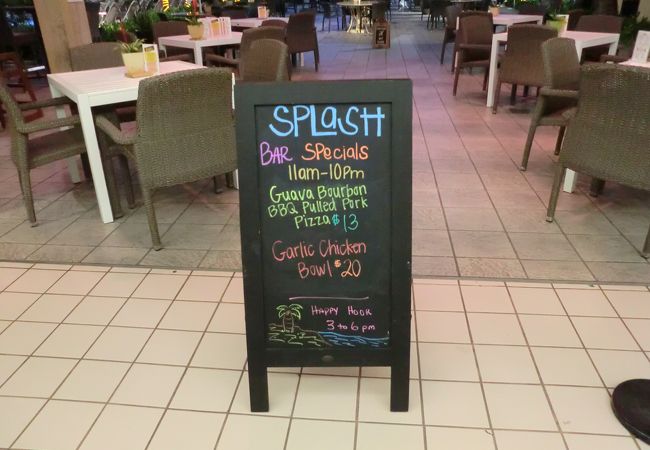 SPLasH
BAR SPecials
11am-10Pm
Guava Bourbon
BBQ Pulled Pork
Pizza $13
Garlic Chicken
Bowl $20
Happy Hour
3 to 6 pm